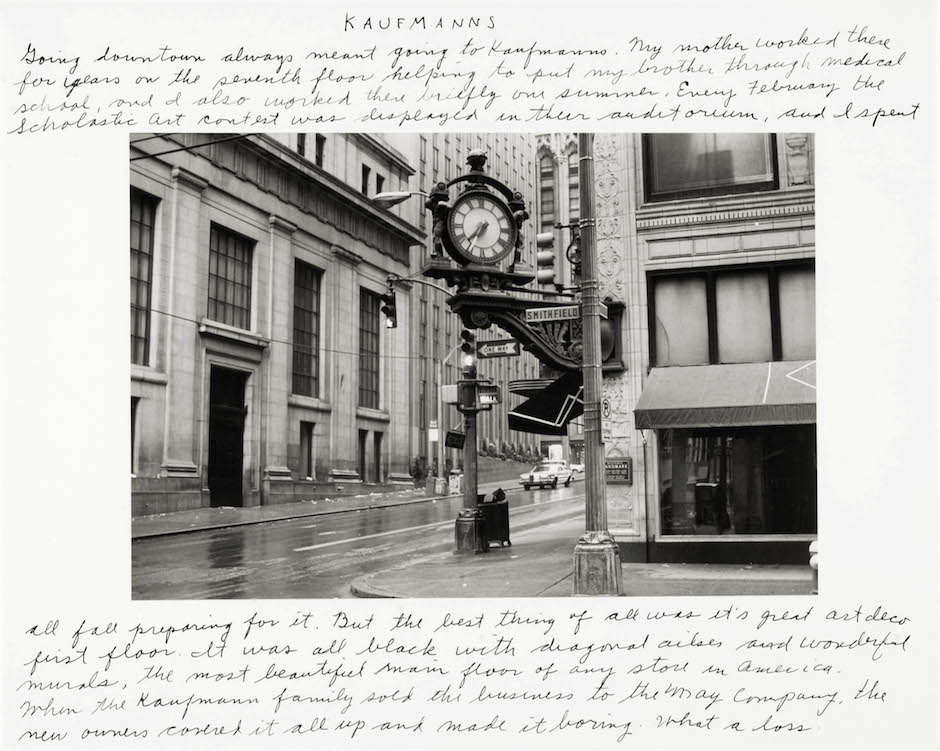 KAUFMANNS
Going downtown always meant going to Kaufmanns. My mother worked there
for years on the seventh floor helping to put my brother through medical
school, and I also worked there briefly one summer. Every February the
Scholastic Art contest was displayed in their auditorium, and I spent
SMITHFIELD
ONE WAY
WALK
LANDMARK
all fall preparing for it. But the best thing of all was it's great art deco
first floor. It was all black with diagonal ailses and wonderful
murals, the most beautiful main floor of any store in America.
When the Kaufmann family sold the business to the May Company, the
new owners covered it all up and made it boring. What a loss.